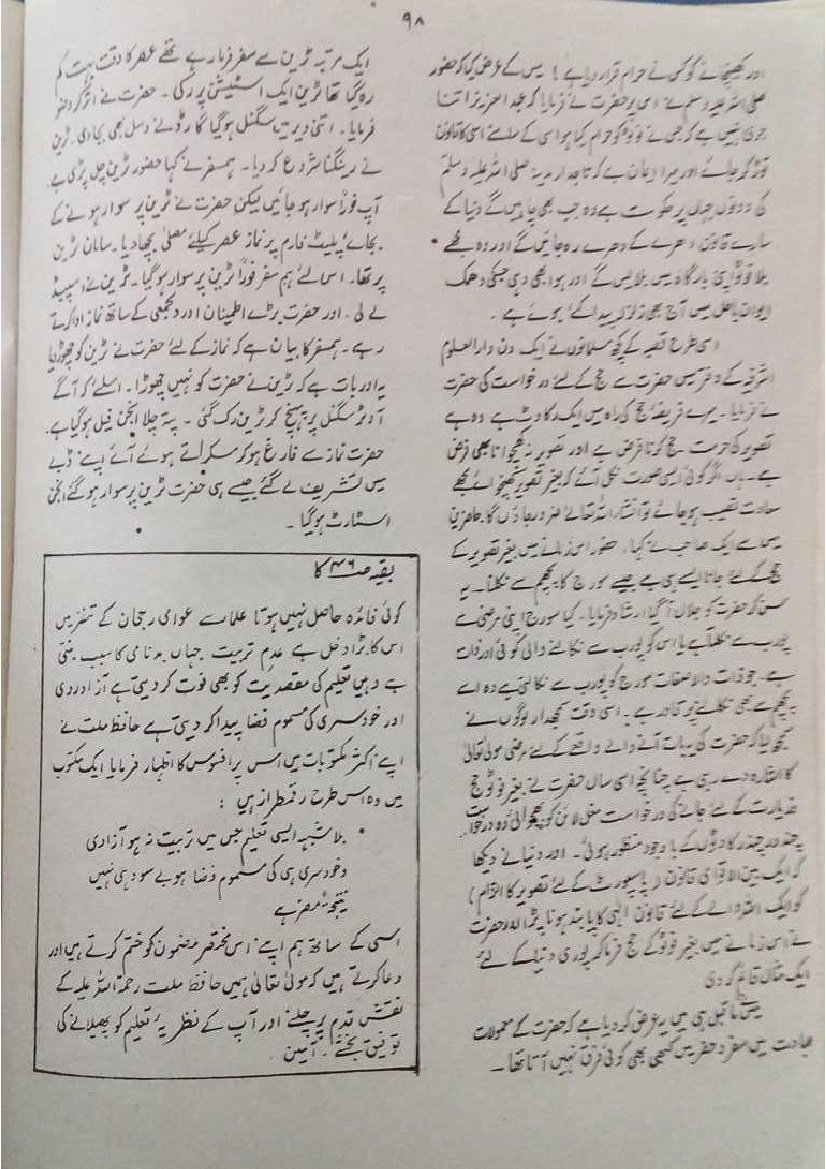 ۹۸
اور کھینچانے کو کس نے حرام قرار دیا ہے؟ میں نے عرض کیا کہ حضور
صلی اللہ علیہ وسلم نے اس پر حضرت نے فرمایا کہ عبد العزیز اتنا
جری نہیں ہے کہ جس نے فوٹو کو حرام کیا ہو اسی کے سامنے اسی کا قانون
توڑ کر جائے اور میرا ایمان ہے کہ تاجدار مدینہ صلی اللہ علیہ وسلم
کی دونوں جہاں پر حکومت ہے وہ جب بھی چاہیں گے دنیا کے
سارے قانون دھرے کے دھرے رہ جائیں گے اور وہ مجھے
بلا فوٹو اپنی بارگاہ میں بلالیں گے اور ہوا بھی وہی جسکی دھمک
ایوان باطل میں آج بھی تزلزل پیدا کئے ہوئے ہے ۔
اسی طرح قصبہ کے کچھ مسلمانوں نے ایک دن دار العلوم
اشرفیہ کے دفتر میں حضرت سے حج کے لئے درخواست کی حضرت
نے فرمایا ۔ میرے فریضۂ حج کی راہ میں ایک رکاوٹ ہے وہ ہے
تصویر کی حرمت حج کرنا فرض ہے اور تصویر نہ کھچوانا بھی فرض
ہے ۔ ہاں اگر کوئی ایسی صورت نکل آئے کہ بغیر تصویر کھنچوائے مجھے
سعادت نصیب ہو جائے تو انشاء اللہ تعالےٰ ضرور جاؤں گا حاضرین
میں سے ایک صاحب نے کہا ۔ حضور اس زمانے میں بغیر تصویر کے
حج کے لئے جانا ایسے ہی ہے جیسے سورج کا پچھم سے نکلنا ۔ یہ
سن کر حضرت کو جلال آگیا ارشاد فرمایا ۔ کیا سورج اپنی مرضی سے
پورب سے نکلتا ہے یا اس کو پورب سے نکالنے والی کوئی اور ذات
ہے ۔ جو ذات والا صفات سورج کو پورب سے نکالتی ہے وہ اسے
پچھم سے بھی نکالنے پر قادر ہے ۔ اسی وقت سمجھدار لوگوں نے
سمجھ لیا کہ حضرت کی یہ بات آنے والے واقعے کے لئے مرضی مولیٰ تعالیٰ
کا اشارہ دے رہی ہے چنانچہ اسی سال حضرت نے بغیر فوٹو حج
و زیارت کے لئے جانے کی درخواست مغل لائن کو بھجوائی وہ درخواست
چند در چند رکاوٹوں کے باوجود منظور ہوئی ۔ اور دنیا نے دیکھا
کہ ایک بین الاقوامی قانون ( پاسپورٹ کے لئے تصویر کا التزام )
کو ایک اللہ والے کے لئے قانون الٰہی کا پابند ہونا پڑا اور حضرت
نے اس زمانے میں بغیر فوٹو کے حج فرما کر پوری دنیا کے لئے
ایک مثال قائم کر دی
میں ما قبل ہی میں یہ عرض کر دیا ہے کہ حضرت کے معمولات
عبادت میں سفر و حضر میں کبھی بھی کوئی فرق نہیں آتا تھا ۔
ایک مرتبہ ٹرین سے سفر فرما رہے تھے عصر کا وقت بہت کم
رہ گیا تھا ٹرین ایک اسٹیشن پر رکی ۔ حضرت نے اتر کر وضو
فرمایا ۔ اتنی دیر میں سگنل ہو گیا گارڈ نے وسل بھی بجا دی ۔ ٹرین
نے رینگنا شروع کر دیا ۔ ہمسفر نے کہا حضور ٹرین چل پڑی ہے
آپ فوراً سوار ہو جائیں لیکن حضرت نے ٹرین پر سوار ہونے کے
بجائے پلیٹ فارم پر نماز عصر کیلئے مصلیٰ بچھا دیا ۔ سامان ٹرین
پر تھا ۔ اس لئے ہم سفر فوراً ٹرین پر سوار ہو گیا ۔ ٹرین نے اسپیڈ
لے لی ۔ اور حضرت بڑے اطمینان اور دلجمعی کے ساتھ نماز ادا کرتے
رہے ۔ ہمسفر کا بیان ہے کہ نماز کے لئے حضرت نے ٹرین کو چھوڑ دیا
یہ اور بات ہے کہ ٹرین نے حضرت کو نہیں چھوڑا ۔ اسلئے کہ آگے
آؤٹر سگنل پر پہنچ کر ٹرین رک گئی ۔ پتہ چلا انجن فیل ہو گیا ہے
حضرت نماز سے فارغ ہو کر مسکراتے ہوئے آئے اپنے ڈبے
میں تشریف لے گئے جیسے ہی حضرت ٹرین پر سوار ہو گئے انجن
اسٹارٹ ہو گیا ۔
بقیہ صـ ۴۶ کا
کوئی فائدہ حاصل نہیں ہوتا علماء سے عوامی رجحان کے تنفر میں
اس کا بڑا دخل ہے عدم تربیت جہاں بدنامی کا سبب بنتی
ہے وہیں تعلیم کی مقصدیت کو بھی فوت کر دیتی ہے آزادروی
اور خودسری کی مسموم فضا پیدا کر دیتی ہے حافظ ملت نے
اپنے اکثر مکتوبات میں اس پر افسوس کا اظہار فرمایا ایک مکتوب
میں وہ اس طرح رقمطراز ہیں :
بلا شبہ ایسی تعلیم جس میں تربیت نہ ہو آزادی
و خودسری ہی کی مسموم فضا ہو بے سود ہی نہیں
نتیجۃً مضر ہے
اسی کے ساتھ ہم اپنے اس مختصر مضمون کو ختم کرتے ہیں اور
دعا کرتے ہیں کہ مولیٰ تعالیٰ ہمیں حافظ ملت رحمۃ اللہ علیہ کے
نقش قدم پر چلنے اور آپ کے نظریۂ تعلیم کو پھیلانے کی
توفیق بخشے ۔ آمین